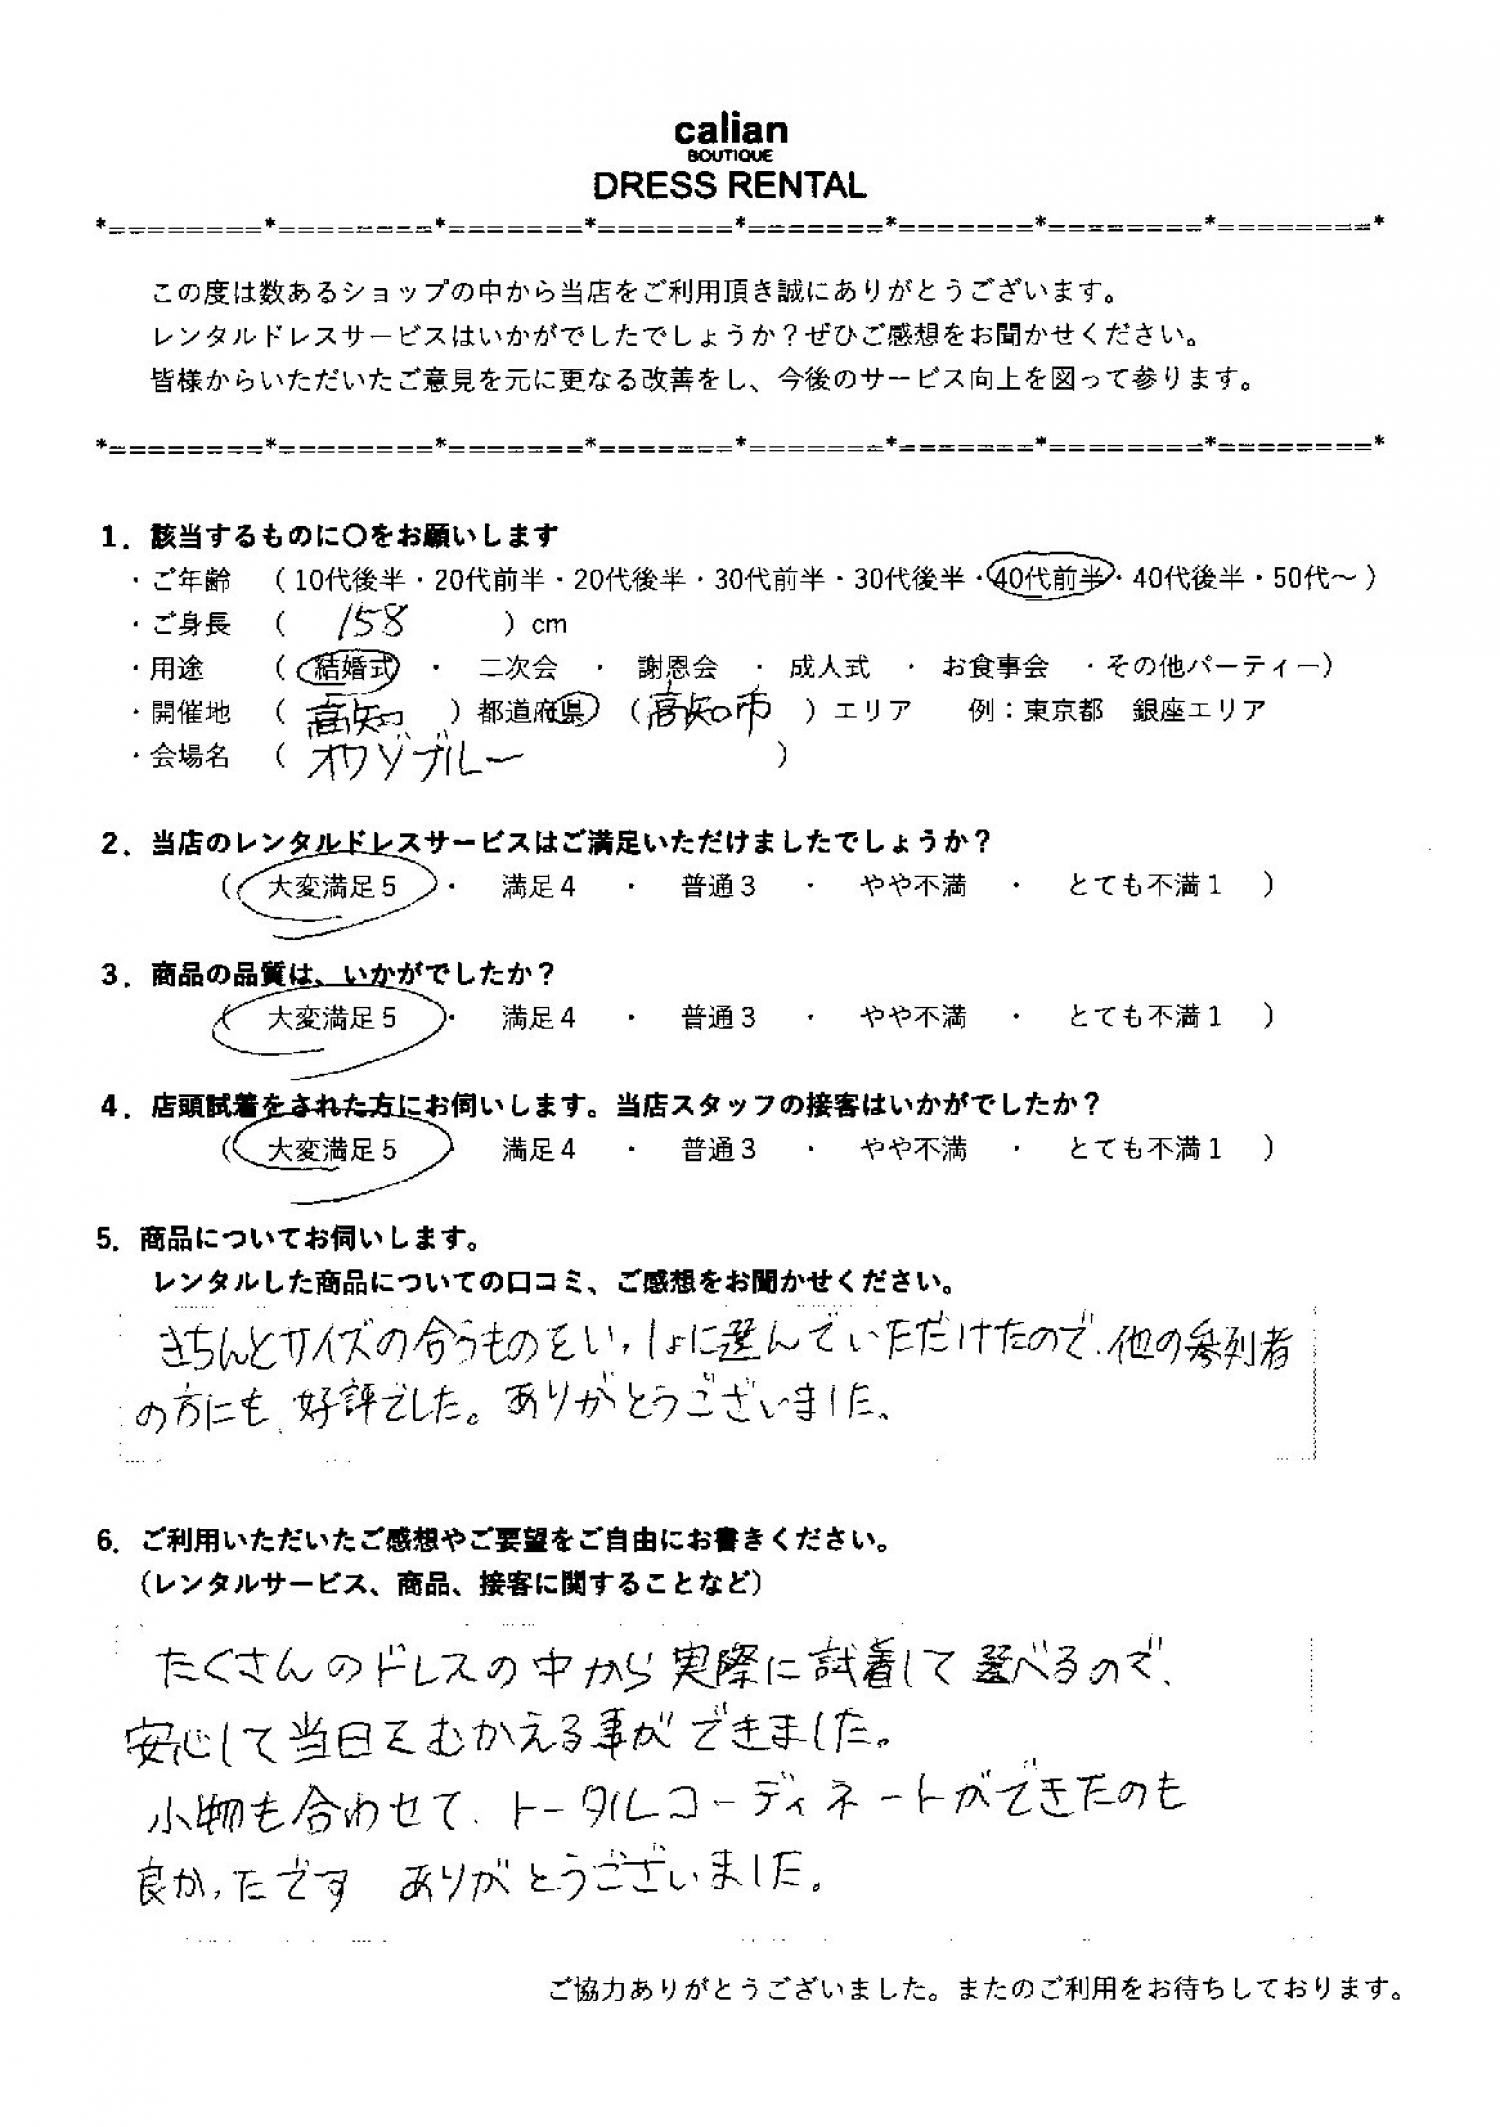 calian
BOUTIQUE
DRESS RENTAL
*========*========*=======*=======*=======*=======*========*========*
この度は数あるショップの中から当店をご利用頂き誠にありがとうございます。
レンタルドレスサービスはいかがでしたでしょうか？ぜひご感想をお聞かせください。
皆様からいただいたご意見を元に更なる改善をし、今後のサービス向上を図って参ります。
*========*========*=======*=======*=======*=======*========*========*
1．該当するものに〇をお願いします
・ご年齢　（ 10代後半・20代前半・20代後半・30代前半・30代後半・40代前半・40代後半・50代～ ）
・ご身長　（　158　）cm
・用途　（ 結婚式 ・ 二次会 ・ 謝恩会 ・ 成人式 ・ お食事会 ・その他パーティー）
・開催地　（ 高知 ）都道府県　（高知市 ）エリア　例：東京都　銀座エリア
・会場名　（ オワゾブルー ）
2．当店のレンタルドレスサービスはご満足いただけましたでしょうか？
（ 大変満足５ ・ 満足４ ・ 普通３ ・ やや不満 ・ とても不満１ ）
3．商品の品質は、いかがでしたか？
（ 大変満足５ ・ 満足４ ・ 普通３ ・ やや不満 ・ とても不満１ ）
4．店頭試着をされた方にお伺いします。当店スタッフの接客はいかがでしたか？
（ 大変満足５ ・ 満足４ ・ 普通３ ・ やや不満 ・ とても不満１ ）
5．商品についてお伺いします。
レンタルした商品についての口コミ、ご感想をお聞かせください。
きちんとサイズの合うものをいっしょに選んでいただけたので、他の参列者
の方にも、好評でした。ありがとうございました、
6．ご利用いただいたご感想やご要望をご自由にお書きください。
（レンタルサービス、商品、接客に関することなど）
たくさんのドレスの中から実際に試着して選べるので、
安心して当日をむかえる事ができました。
小物も合わせて、トータルコーディネートができたのも
良かったです　ありがとうございました。
ご協力ありがとうございました。またのご利用をお待ちしております。